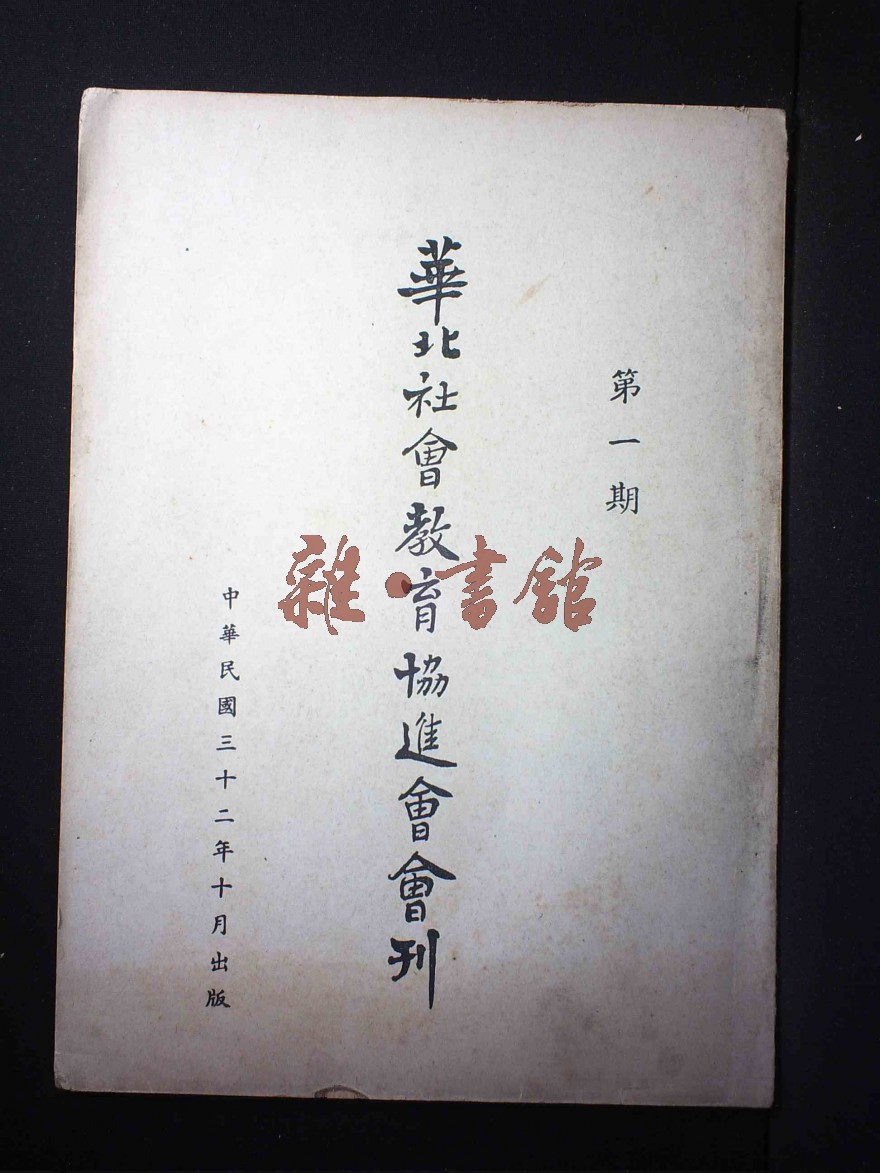 第一期
華北社會教育協進會會刊
中華民國三十二年十月出版
雜·書館